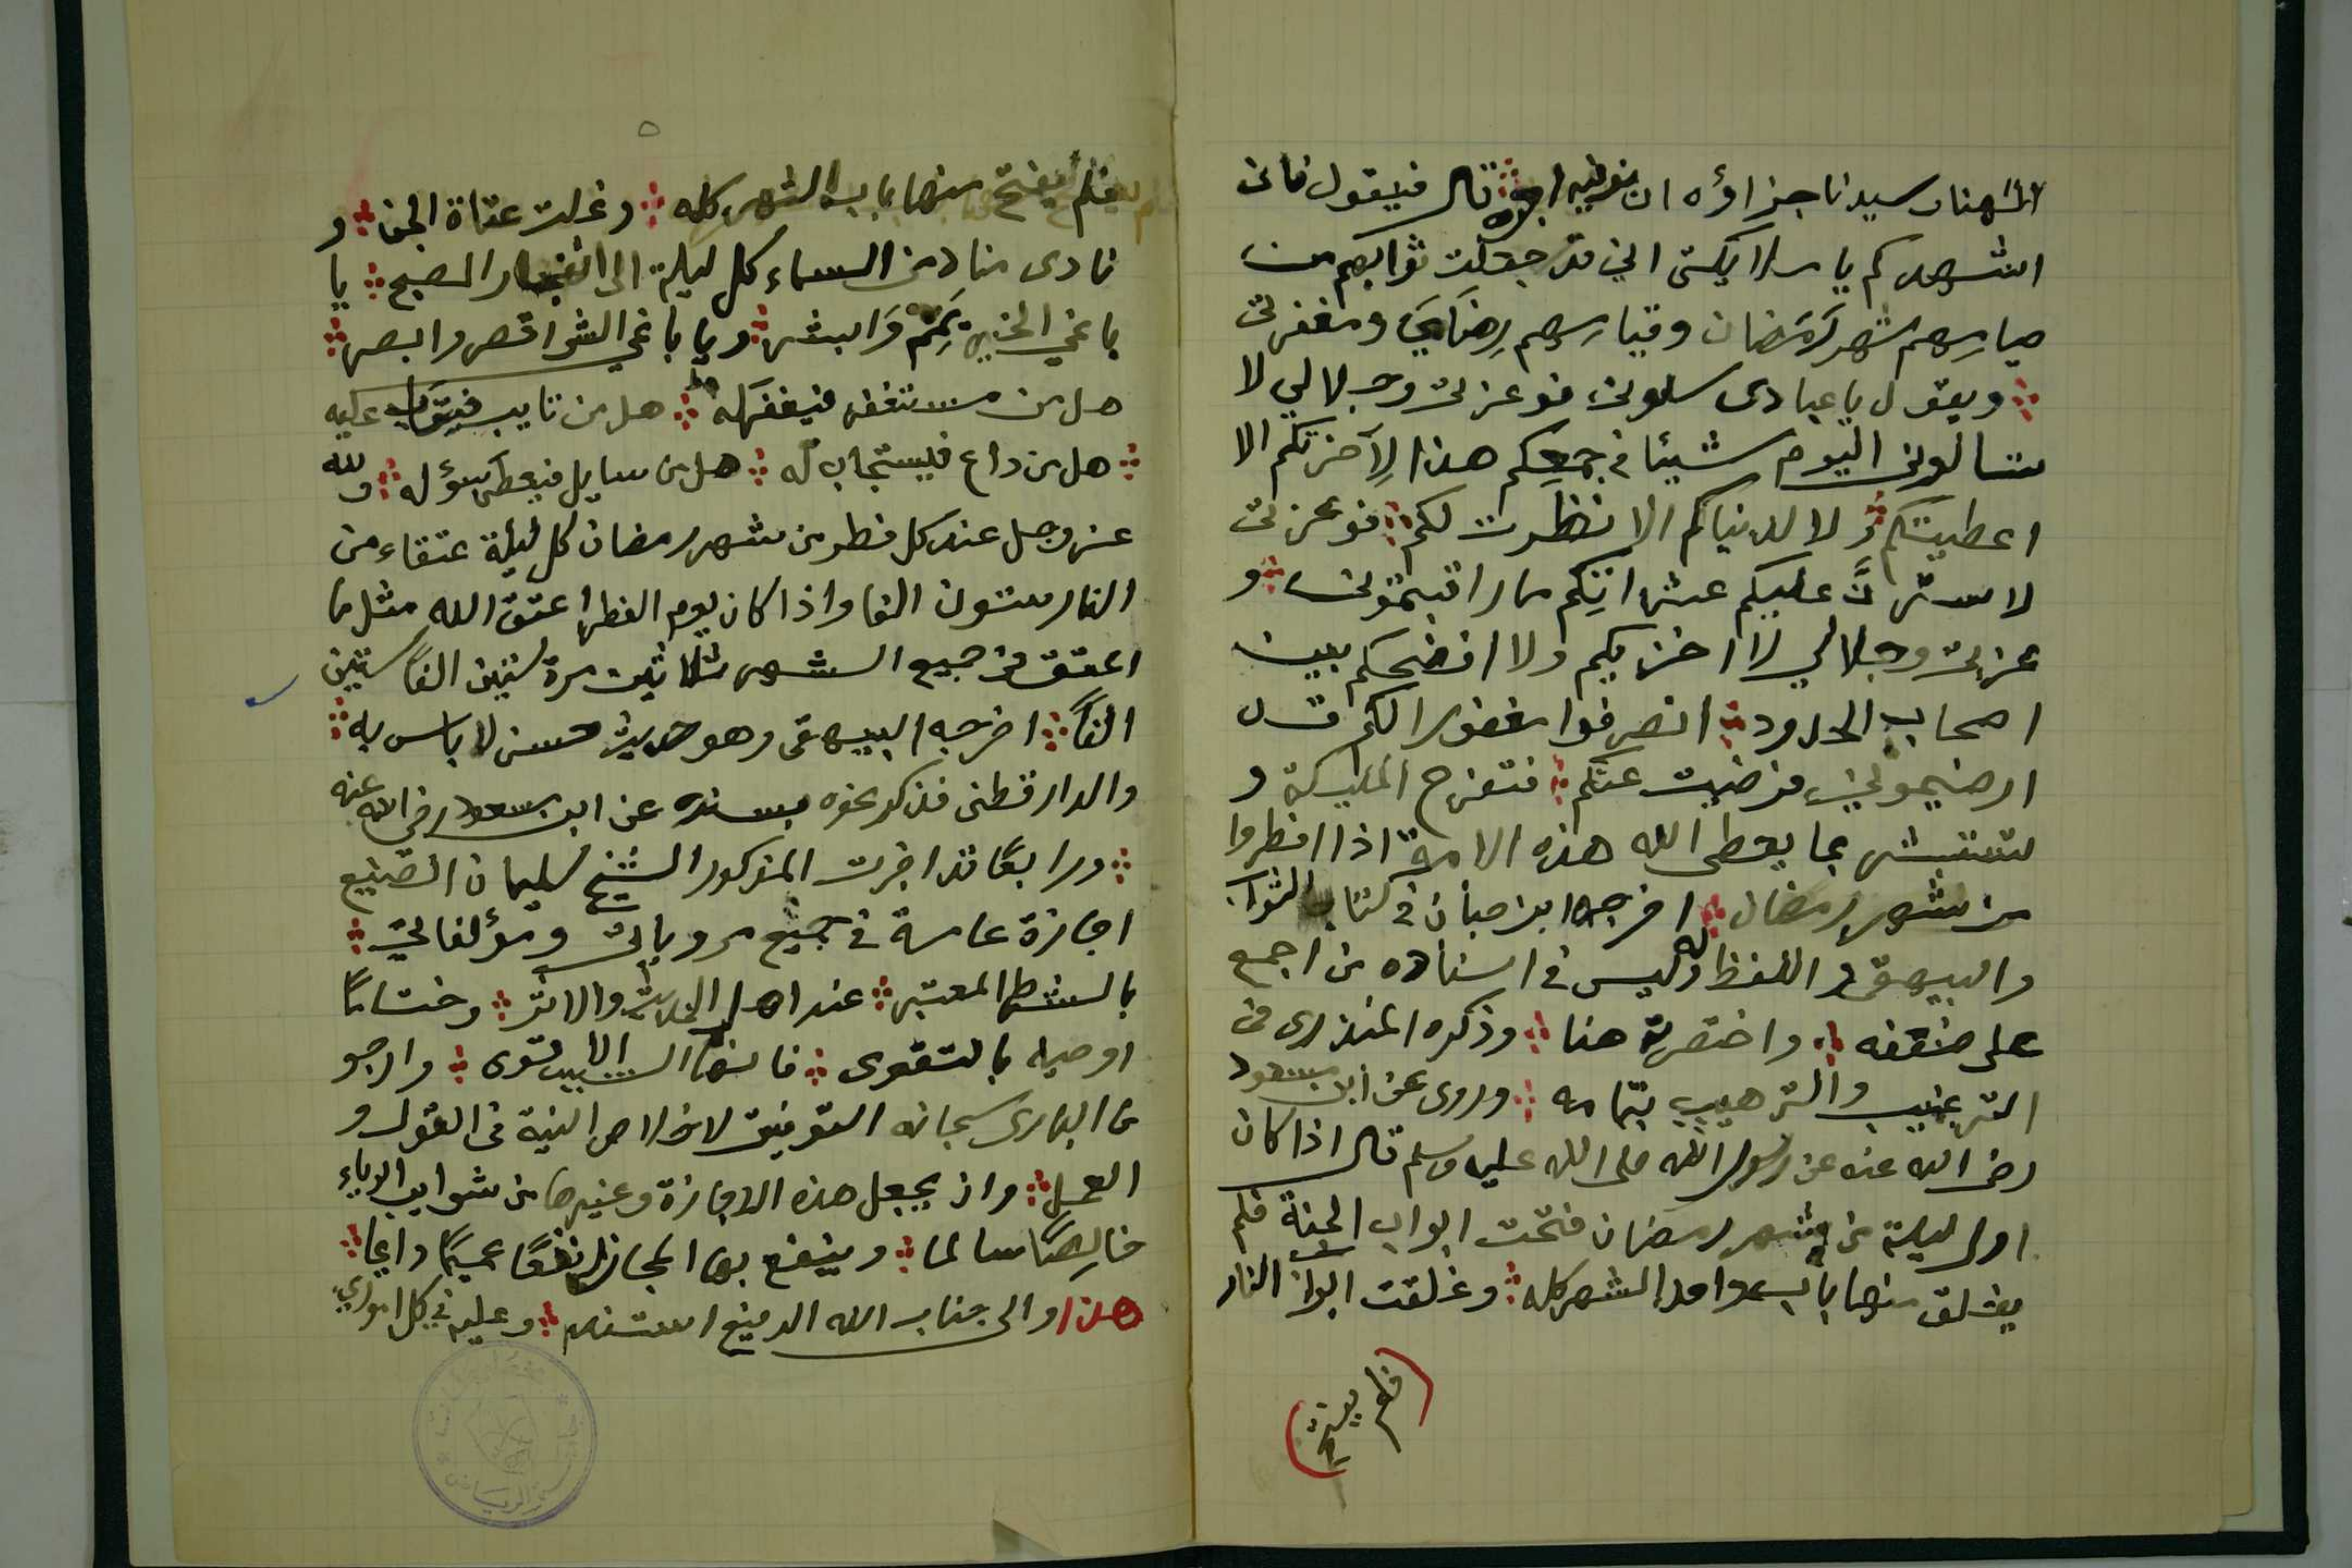 الهنا وسيدنا جزاؤه ان توفيه اجره قال فيقول فانى
اشهدكم يا ملايكتى اني قد جعلت ثوابهم من
صيامهم شهر رمضان وقيامهم رضآيَ ومغفرتى
ويقول يا عبادى سلونى فوعزتى وجلالي لا
تسالونى اليوم شيئا في جمعكم هذا لِآخرتكم الا
اعطيتكم ولا لدنياكم الا نظرت لكم فوعزتى
لاسترنَّ عليكم عثراتِكم ما راقبتمونى و
عزتى وجلالي لا اخزيكم ولا افضحكم بين
اصحاب الحدود انصرفوا مغفورا لكم قد
ارضيتمونى فرضيت عنكم فتفرح المليكة و
تستبشر بما يعطى الله هذه الامة اذا افطروا
من شهر رمضان اخرجه ابن حبان في كتاب الثواب
والبيهقى واللفظ له وليس في اسناده من اجمع
على ضعفه واختصرته هنا وذكره المنذرى فى
الترغيب والترهيب بتمامه وروى عن ابن مسعود
رضى الله عنه عن رسول الله صلى الله عليه وسلم قال اذا كان
اول ليلة من شهر رمضان فتحت ابواب الجنة فلم
يغلق منها باب واحد الشهر كله وغلقت ابواب النار
(فلم يفتح)
فلم يفتح منها باب الشهر كله وغلت عتاة الجن و
نادى مناد من السماء كل ليلة الى انفجار الصبح يا
باغي الخير تَمِّمْ وَابشر ويا باغي الشر اقصر وابصر
هل من مستغفر فيغفر له هل من تايب فيتوب عليه
هل من داع فيستجاب له هل من سايل فيعطى سؤله ولله
عز وجل عند كل فطر من شهر رمضان كل ليلة عتقاء من
النار ستون الفا واذا كان يوم الفطر اعتق الله مثل ما
اعتق فى جميع الشهر ثلاثين مرة ستين الفاً ستين
الفاً اخرجه البيهقى وهو حديث حسن لا باس به
والدارقطنى فذكر نحوه بسنده عن ابن مسعود رضى الله عنه
ورابعًا قد اجزت المذكور الشيخ سليمان الصنيع
اجازة عامة في جميع مروياتى ومؤلفاتي
بالشرط المعتبر عند اهل الحديث والاثر وختامًا
اوصيه بالتقوى فانها السبيل الاقوى وارجو
من البارى سبحانه التوفيق لاخلاص النية فى القول و
العمل وان يجعل هذه الاجازة وغيرها من شوايب الرياء
خالِصًا سالما وينفع بها المجاز نفعًا عميمًا دايما
هذا والى جناب الله الرفيع استند وعليه في كل اموري